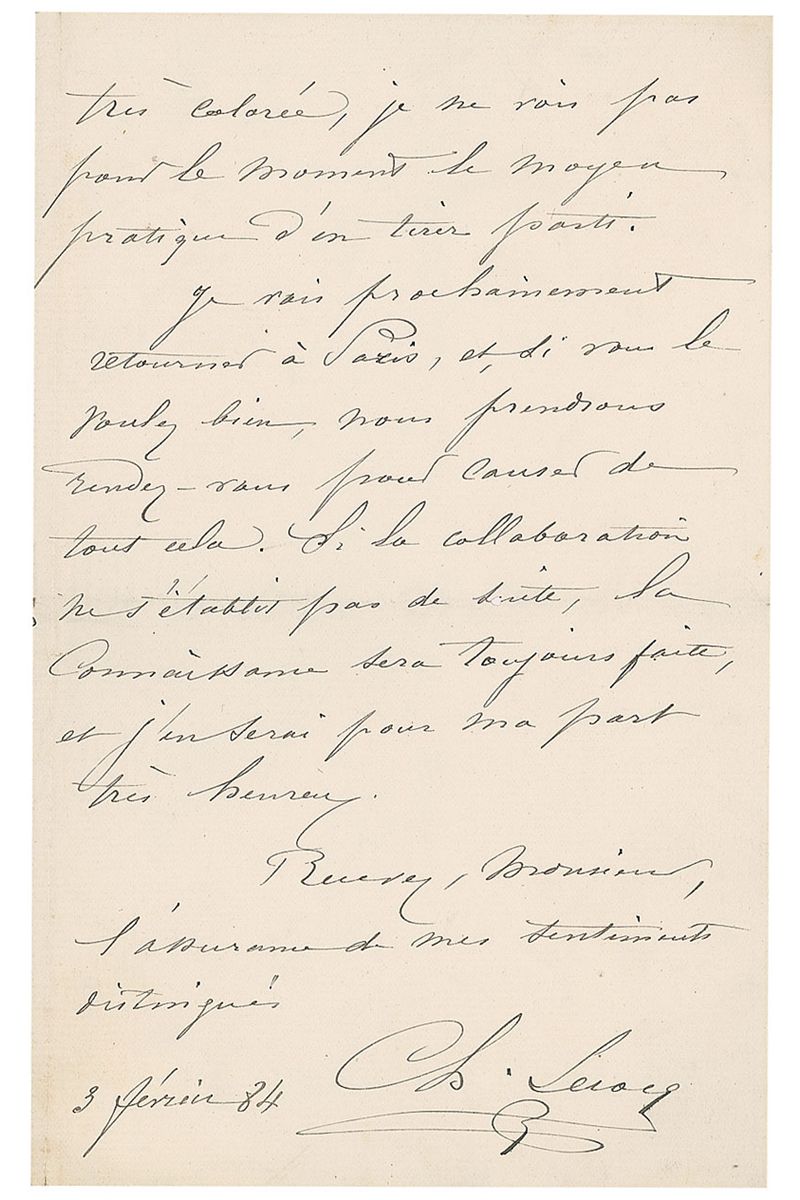 très colorée, je ne vois pas
pour le moment le moyen
pratique d'en tirer parti.
Je vais prochainement
retourner à Paris, et, si vous le
voulez bien, nous prendrons
rendez-vous pour causer de
tout cela. Si la collaboration
ne s'établit pas de suite, la
connaissance sera toujours faite,
et j'en serai pour ma part
très heureux.
Recevez, Monsieur,
l'assurance de mes sentiments
distingués
3 février 84 Ch. Lecocq